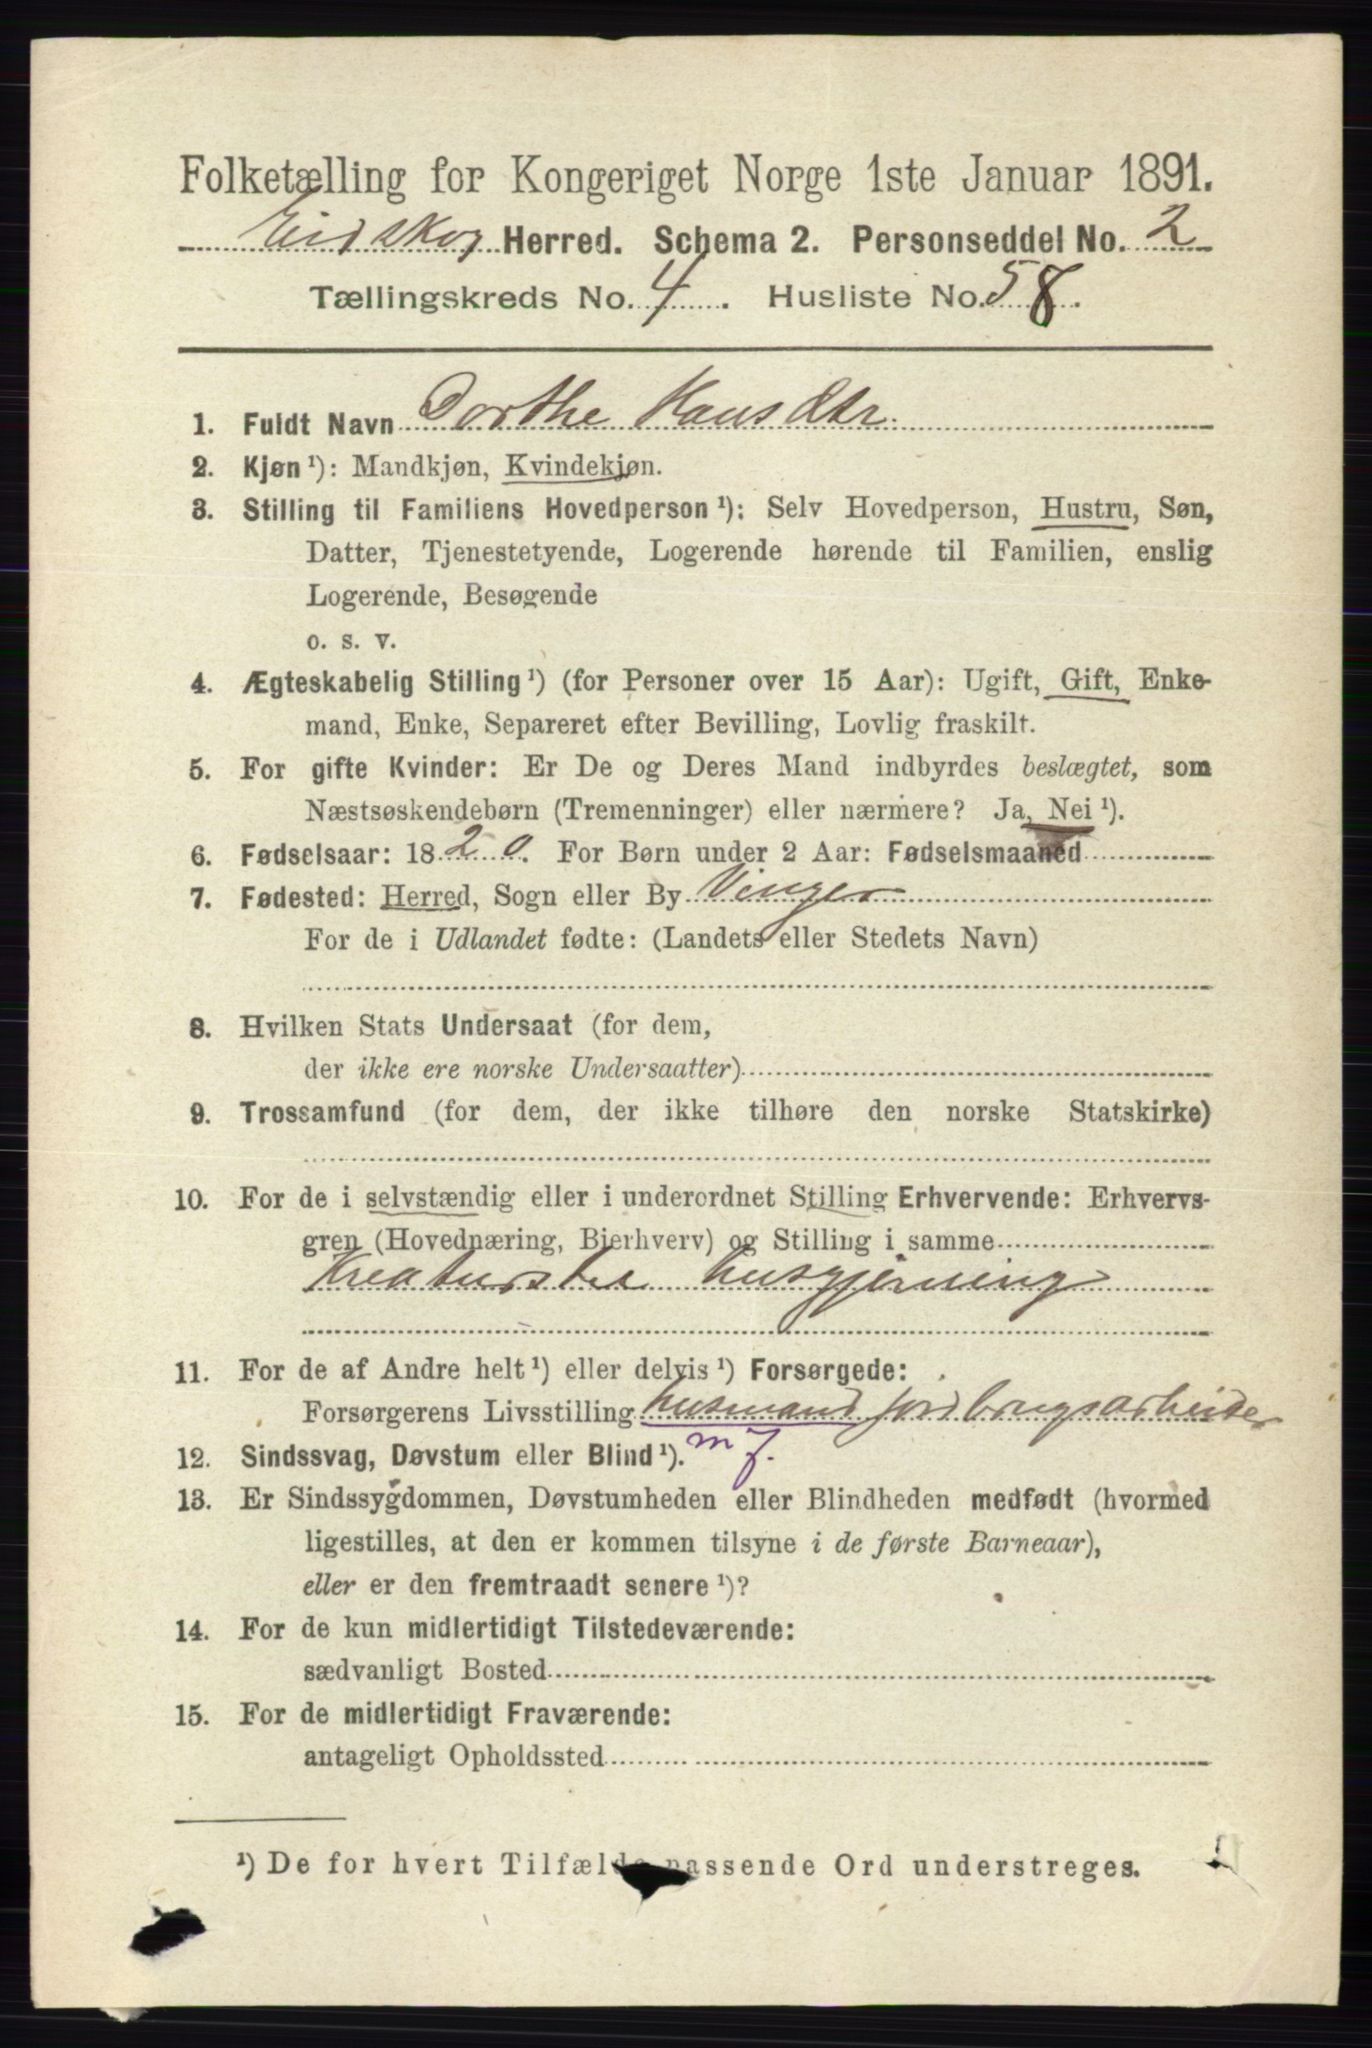 Folketælling for Kongeriget Norge 1ste Januar 1891.
Eidskog Herred. Schema 2. Personseddel No. 2
Tællingskreds No. 4. Husliste No. 58.
1. Fuldt Navn Dorthe Hansdtr.
2. Kjøn ¹): Mandkjøn, Kvindekjøn.
3. Stilling til Familiens Hovedperson ¹): Selv Hovedperson, Hustru, Søn,
Datter, Tjenestetyende, Logerende hørende til Familien, enslig
Logerende, Besøgende
o. s. v.
4. Ægteskabelig Stilling ¹) (for Personer over 15 Aar): Ugift, Gift, Enke-
mand, Enke, Separeret efter Bevilling, Lovlig fraskilt.
5. For gifte Kvinder: Er De og Deres Mand indbyrdes beslægtet, som
Næstsøskendebørn (Tremenninger) eller nærmere? Ja, Nei ¹).
6. Fødselsaar: 1820. For Børn under 2 Aar: Fødselsmaaned
7. Fødested: Herred, Sogn eller By Vinger
For de i Udlandet fødte: (Landets eller Stedets Navn)
8. Hvilken Stats Undersaat (for dem,
der ikke ere norske Undersaatter)
9. Trossamfund (for dem, der ikke tilhøre den norske Statskirke)
10. For de i selvstændig eller i underordnet Stilling Erhvervende: Erhvervs-
gren (Hovednæring, Bierhverv) og Stilling i samme
Kreaturstel husgjerning
11. For de af Andre helt ¹) eller delvis ¹) Forsørgede:
Forsørgerens Livsstilling husmand jordbrugsarbeider
m j.
12. Sindssvag, Døvstum eller Blind ¹).
13. Er Sindssygdommen, Døvstumheden eller Blindheden medfødt (hvormed
ligestilles, at den er kommen tilsyne i de første Barneaar),
eller er den fremtraadt senere ¹)?
14. For de kun midlertidigt Tilstedeværende:
sædvanligt Bosted
15. For de midlertidigt Fraværende:
antageligt Opholdssted
¹) De for hvert Tilfælde passende Ord understreges.